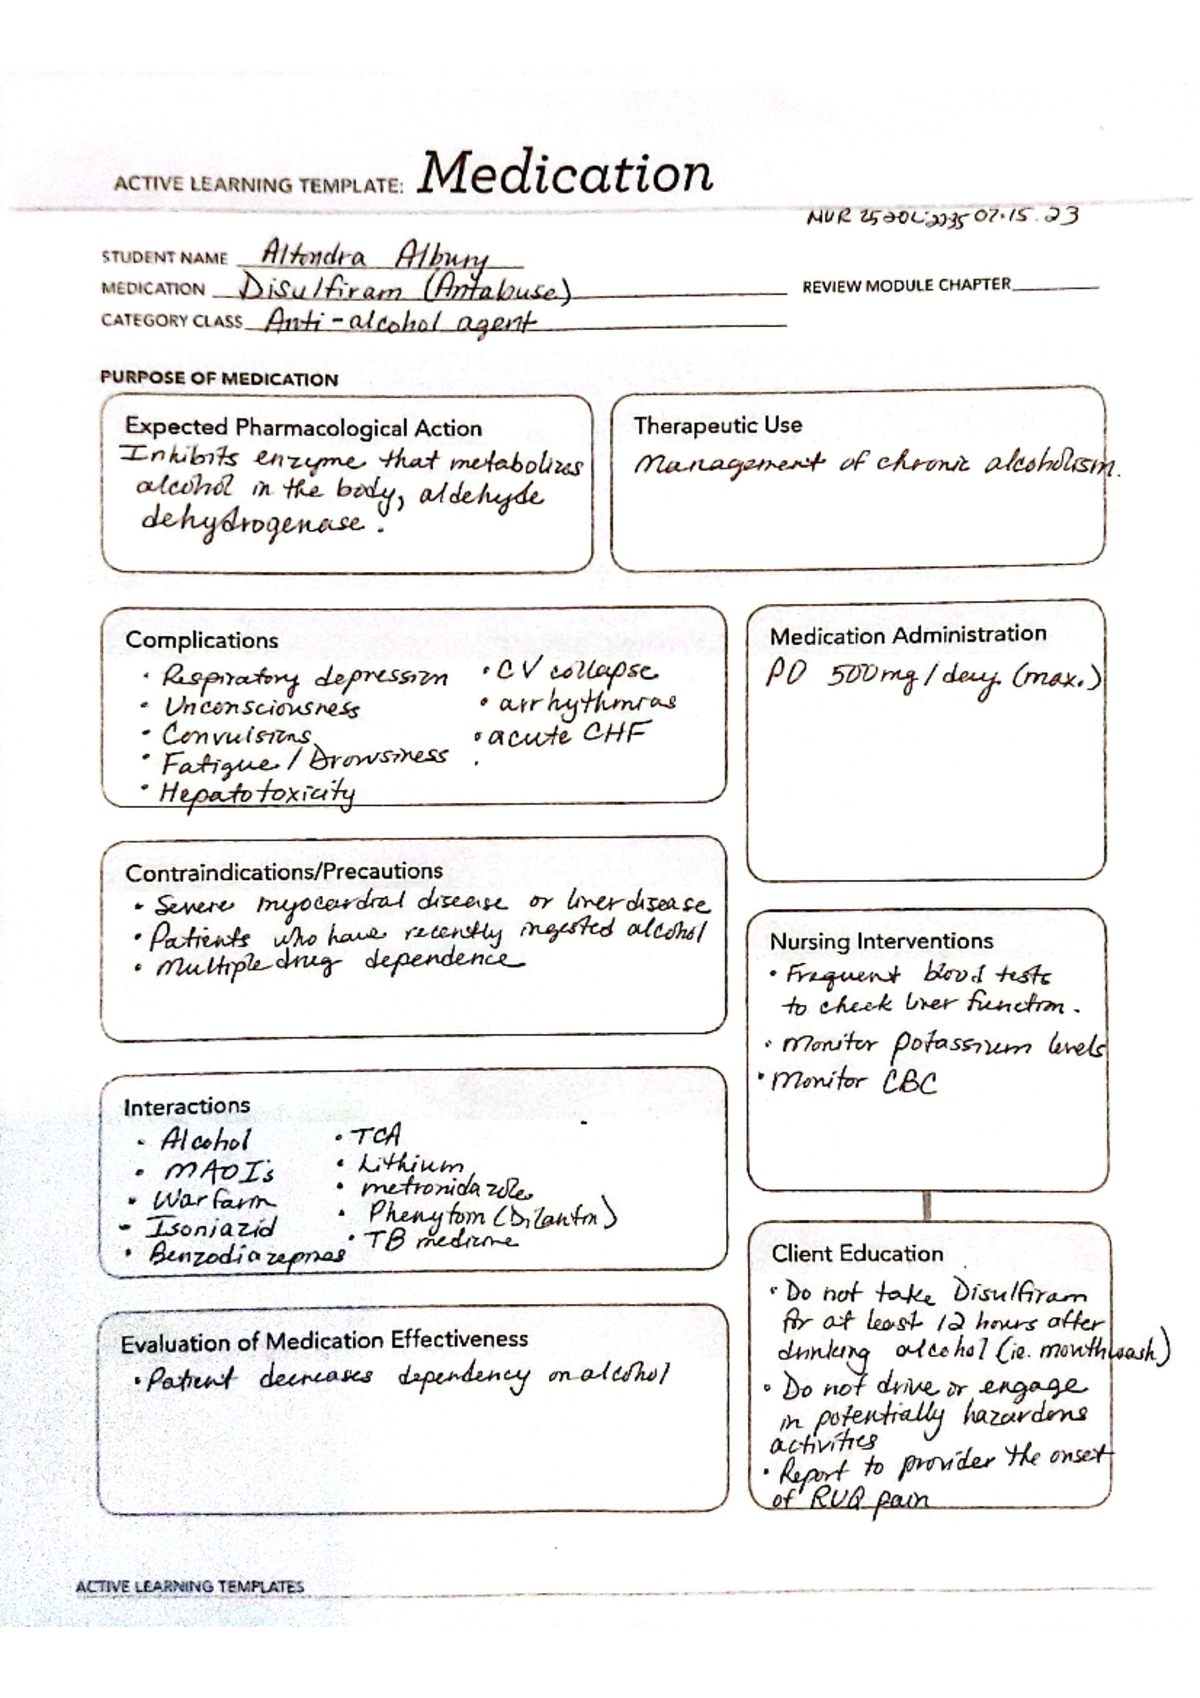 ACTIVE LEARNING TEMPLATE: Medication
07.15.23
STUDENT NAME Altondra Albury
MEDICATION Disulfiram (Antabuse)
REVIEW MODULE CHAPTER
CATEGORY CLASS Anti-alcohol agent
PURPOSE OF MEDICATION
Expected Pharmacological Action
Inhibits enzyme that metabolizes
alcohol in the body, aldehyde
dehydrogenase.
Therapeutic Use
Management of chronic alcoholism.
Complications
• Respiratory depression
• Unconsciousness
• Convulsions
• Fatigue / Drowsiness
• Hepatotoxicity
• CV collapse
• arrhythmias
• acute CHF
Medication Administration
PO 500mg/day (max.)
Contraindications/Precautions
• Severe myocardial disease or liver disease
• Patients who have recently ingested alcohol
• Multiple drug dependence
Nursing Interventions
• Frequent blood tests
to check liver function.
• Monitor potassium levels
• Monitor CBC
Interactions
• Alcohol
• MAOIs
• Warfarin
• Isoniazid
• Benzodiazepines
• TCA
• Lithium
• metronidazole
• Phenytoin (Dilantin)
• TB medicine
Evaluation of Medication Effectiveness
• Patient decreases dependency on alcohol
Client Education
• Do not take Disulfiram
for at least 12 hours after
drinking alcohol (ie. mouthwash)
• Do not drive or engage
in potentially hazardous
activities
• Report to provider the onset
of RUQ pain
ACTIVE LEARNING TEMPLATES